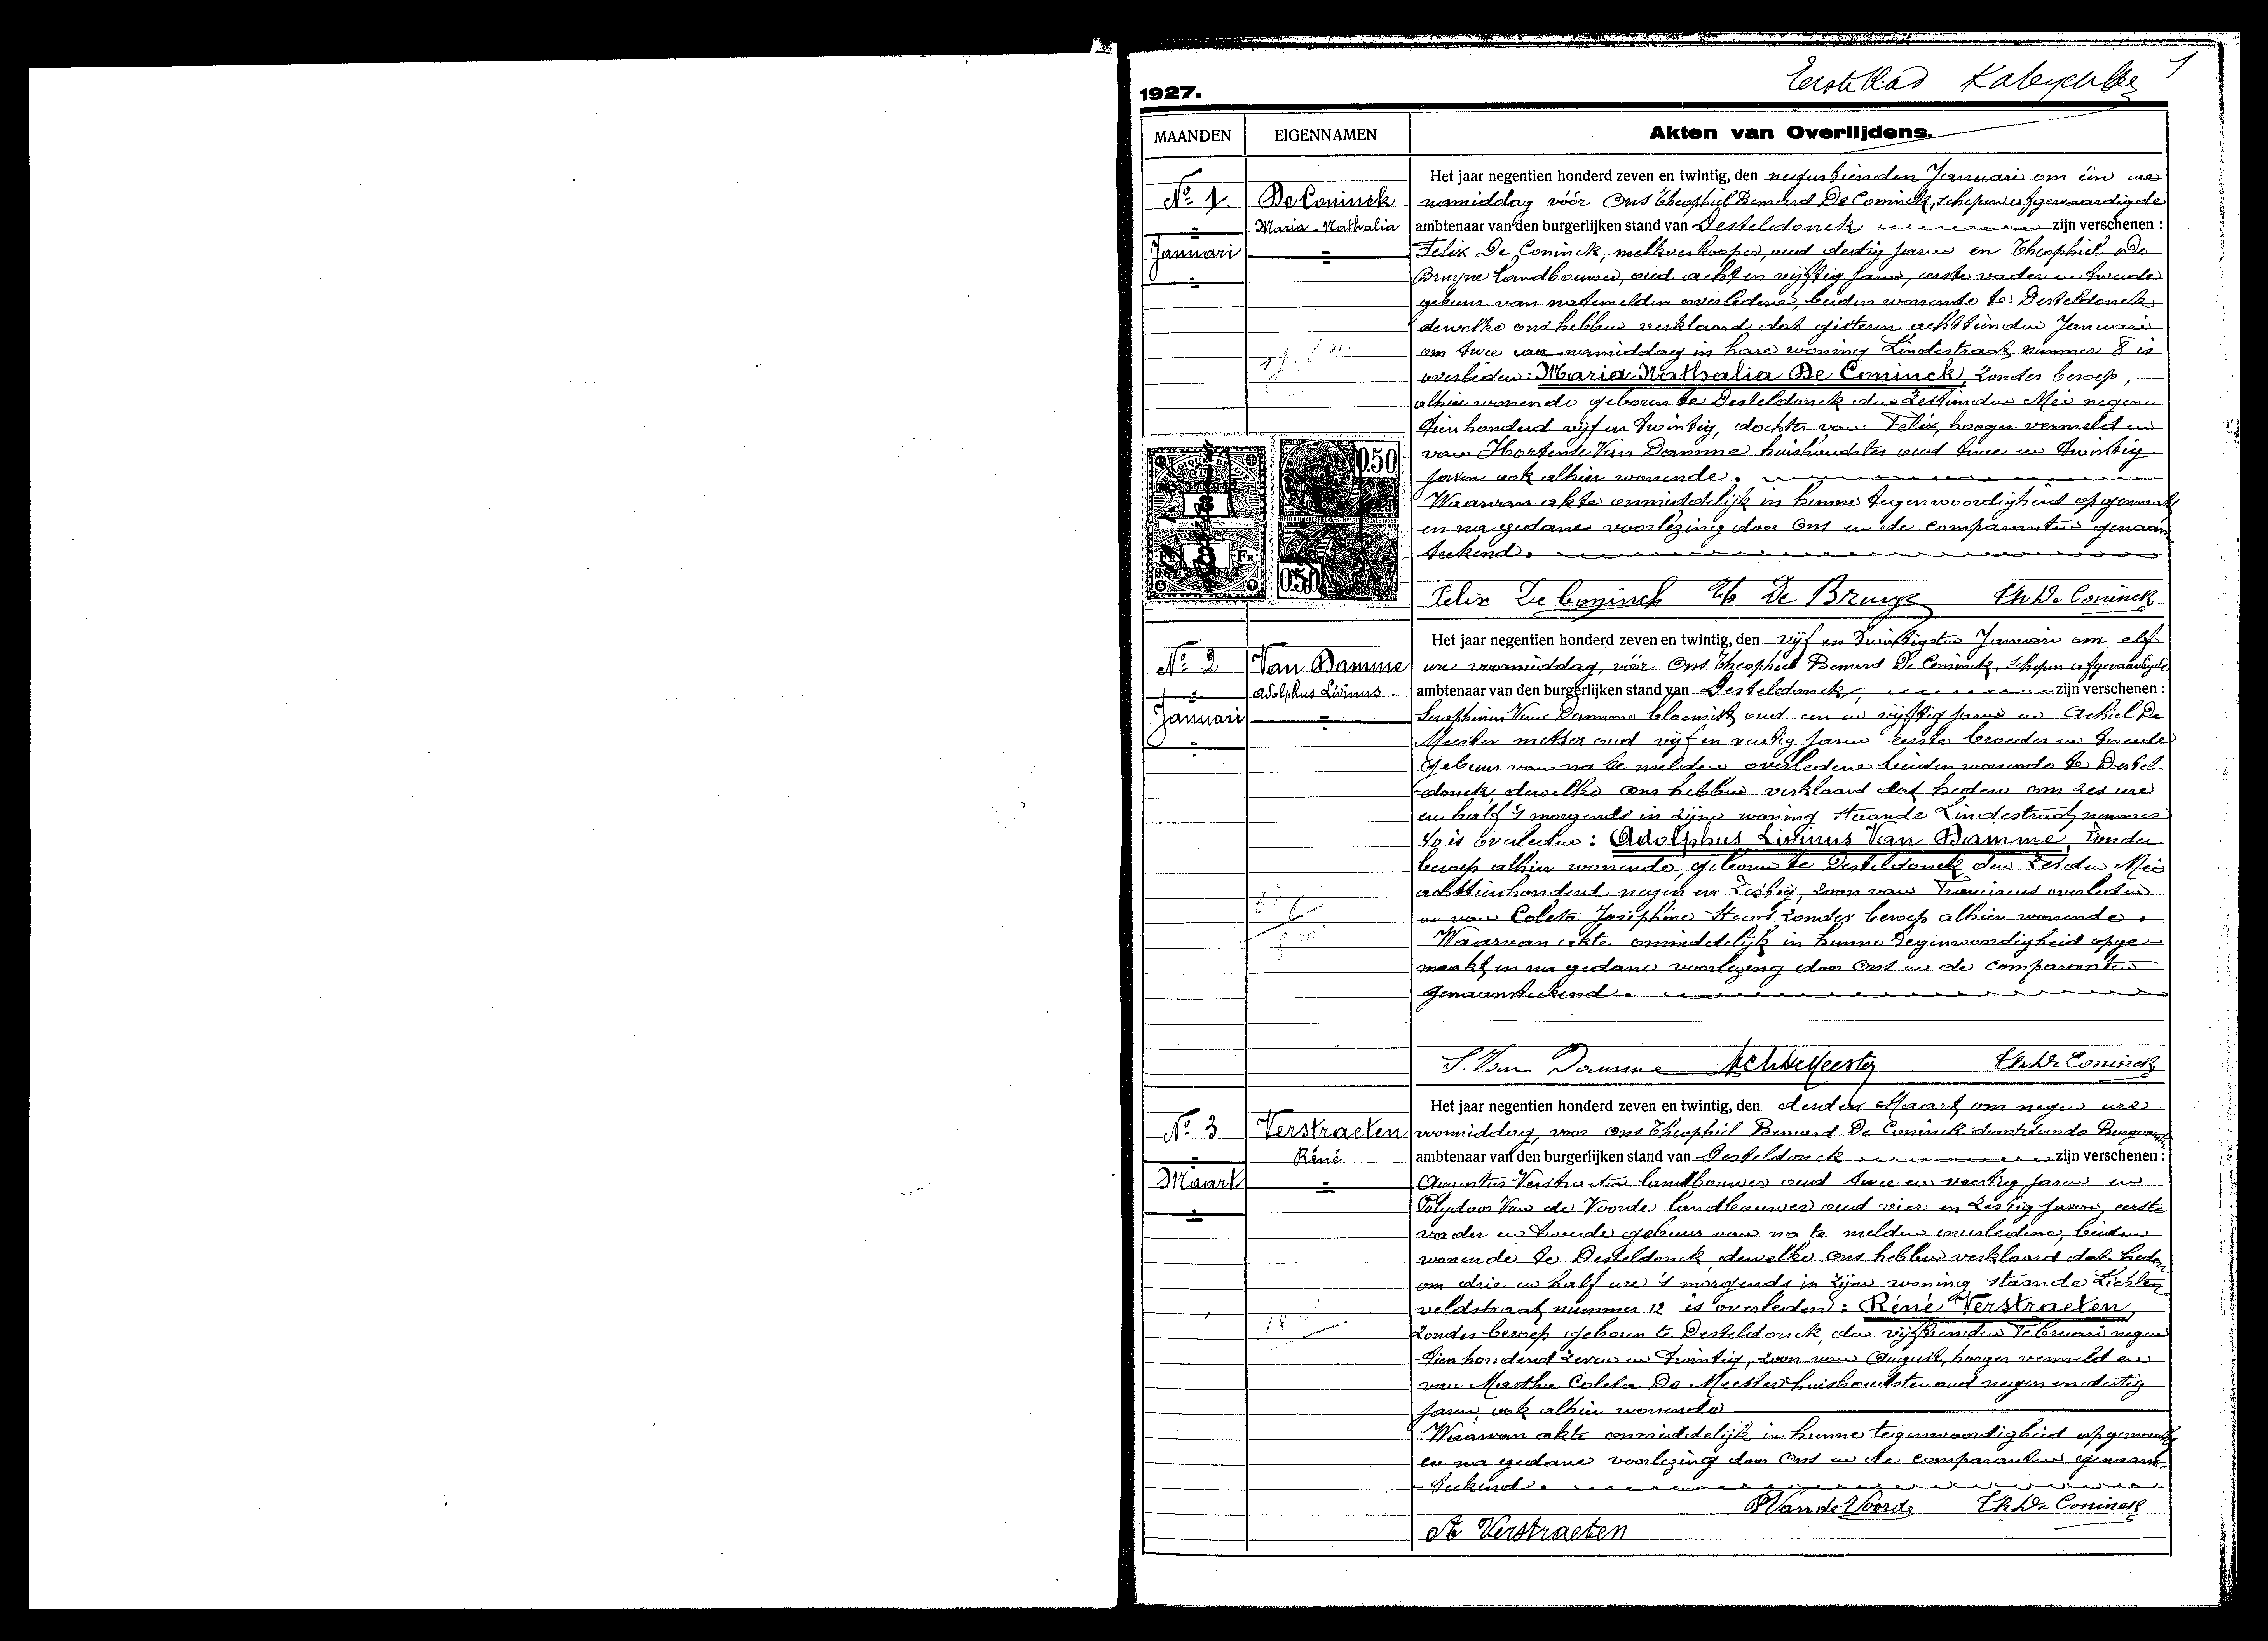 1927.
Eerste Blad
1
MAANDEN
EIGENNAMEN
Akten van Overlijdens.
Nº 1
De Coninck
Maria-Nathalia
Januari
Het jaar negentien honderd zeven en twintig, den negentienden Januari om één ure
namiddag vóór Ons Theophiel Bernard De Coninck, schepen afgevaardigde
ambtenaar van den burgerlijken stand van Desteldonck zijn verschenen :
Felix De Coninck, melkverkooper, oud dertig jaren en Theophiel De
Bruyne landbouwer, oud acht en vijftig jaren, eerste vader en tweede
gebuur van natemelden overledene, beiden wonende te Desteldonck
dewelke ons hebben verklaard dat gisteren achttienden Januari
om twee ure namiddag in hare woning Lindestraat nummer 8 is
overleden : Maria-Nathalia De Coninck, zonder beroep,
alhier wonende geboren te Desteldonck den zestienden Mei negen
tienhonderd vijf en twintig, dochter van Felix, hooger vermeld en
van Hortense Van Damme huishoudster oud twee en twintig
jaren ook alhier wonende.
Waarvan akte onmiddelijk in hunne tegenwoordigheid opgemaakt
en na gedane voorlezing door Ons en de comparanten genaam
teekend.
0.50
0.50
FR
FR.
Felix De Coninck
De Bruyne
Th De Coninck
Nº 2
Van Damme
Adolphus Livinus
Januari
Het jaar negentien honderd zeven en twintig, den vijf en twintigsten Januari om elf
ure voormiddag, vóór Ons Theophiel Bernard De Coninck, schepen afgevaardigde
ambtenaar van den burgerlijken stand van Desteldonck, zijn verschenen :
Seraphinus Van Damme bloemist oud een en vijftig jaren en Achiel De
Meester metser oud vijf en veertig jaren eerste broeder en tweede
gebuur van na te melden overledene beiden wonende te Destel-
donck, dewelke Ons hebben verklaard dat heden om zes ure
en half 's morgends in zijne woning staande Lindestraat, nummer
is overleden : Adolphus Livinus Van Damme, zonder
beroep alhier wonende, geboren te Desteldonck den zesden Mei
achttienhonderd negen en zestig, zoon van Franciscus overleden
en van Coleta Josephine zonder beroep alhier wonende.
Waarvan akte onmiddelijk in hunne tegenwoordigheid opge-
maakt en na gedane voorlezing door Ons en de comparanten
genaamteekend.
S. Van Damme
Ach De Meester
Th De Coninck
Nº 3
Verstraeten
Réné
Maart
Het jaar negentien honderd zeven en twintig, den derden Maart om negen ure
voormiddag, voor Ons Theophiel Bernard De Coninck dienstdoende Burgemeester
ambtenaar van den burgerlijken stand van Desteldonck zijn verschenen :
Augustus Verstraeten landbouwer oud twee en veertig jaren en
Polydoor Van de Voorde landbouwer oud vier en zestig jaren, eerste
vader en tweede gebuur van na te melden overledene, beiden
wonende te Desteldonck, dewelke Ons hebben verklaard dat heden
om drie en half ure 's morgends in zijne woning staande Lichten
veldstraat nummer 12 is overleden : Réné Verstraeten,
zonder beroep geboren te Desteldonck, den vijftienden Februari negen
-tienhonderd zeven en twintig, zoon van August, hooger vermeld en
van Martha Coleta De Meester huishoudster oud negen en dertig
jaren, ook alhier wonende
Waarvan akte onmiddelijk in hunne tegenwoordigheid opgemaakt
en na gedane voorlezing door Ons en de comparanten genaam-
-teekend.
P Van de Voorde
Th De Coninck
A Verstraeten